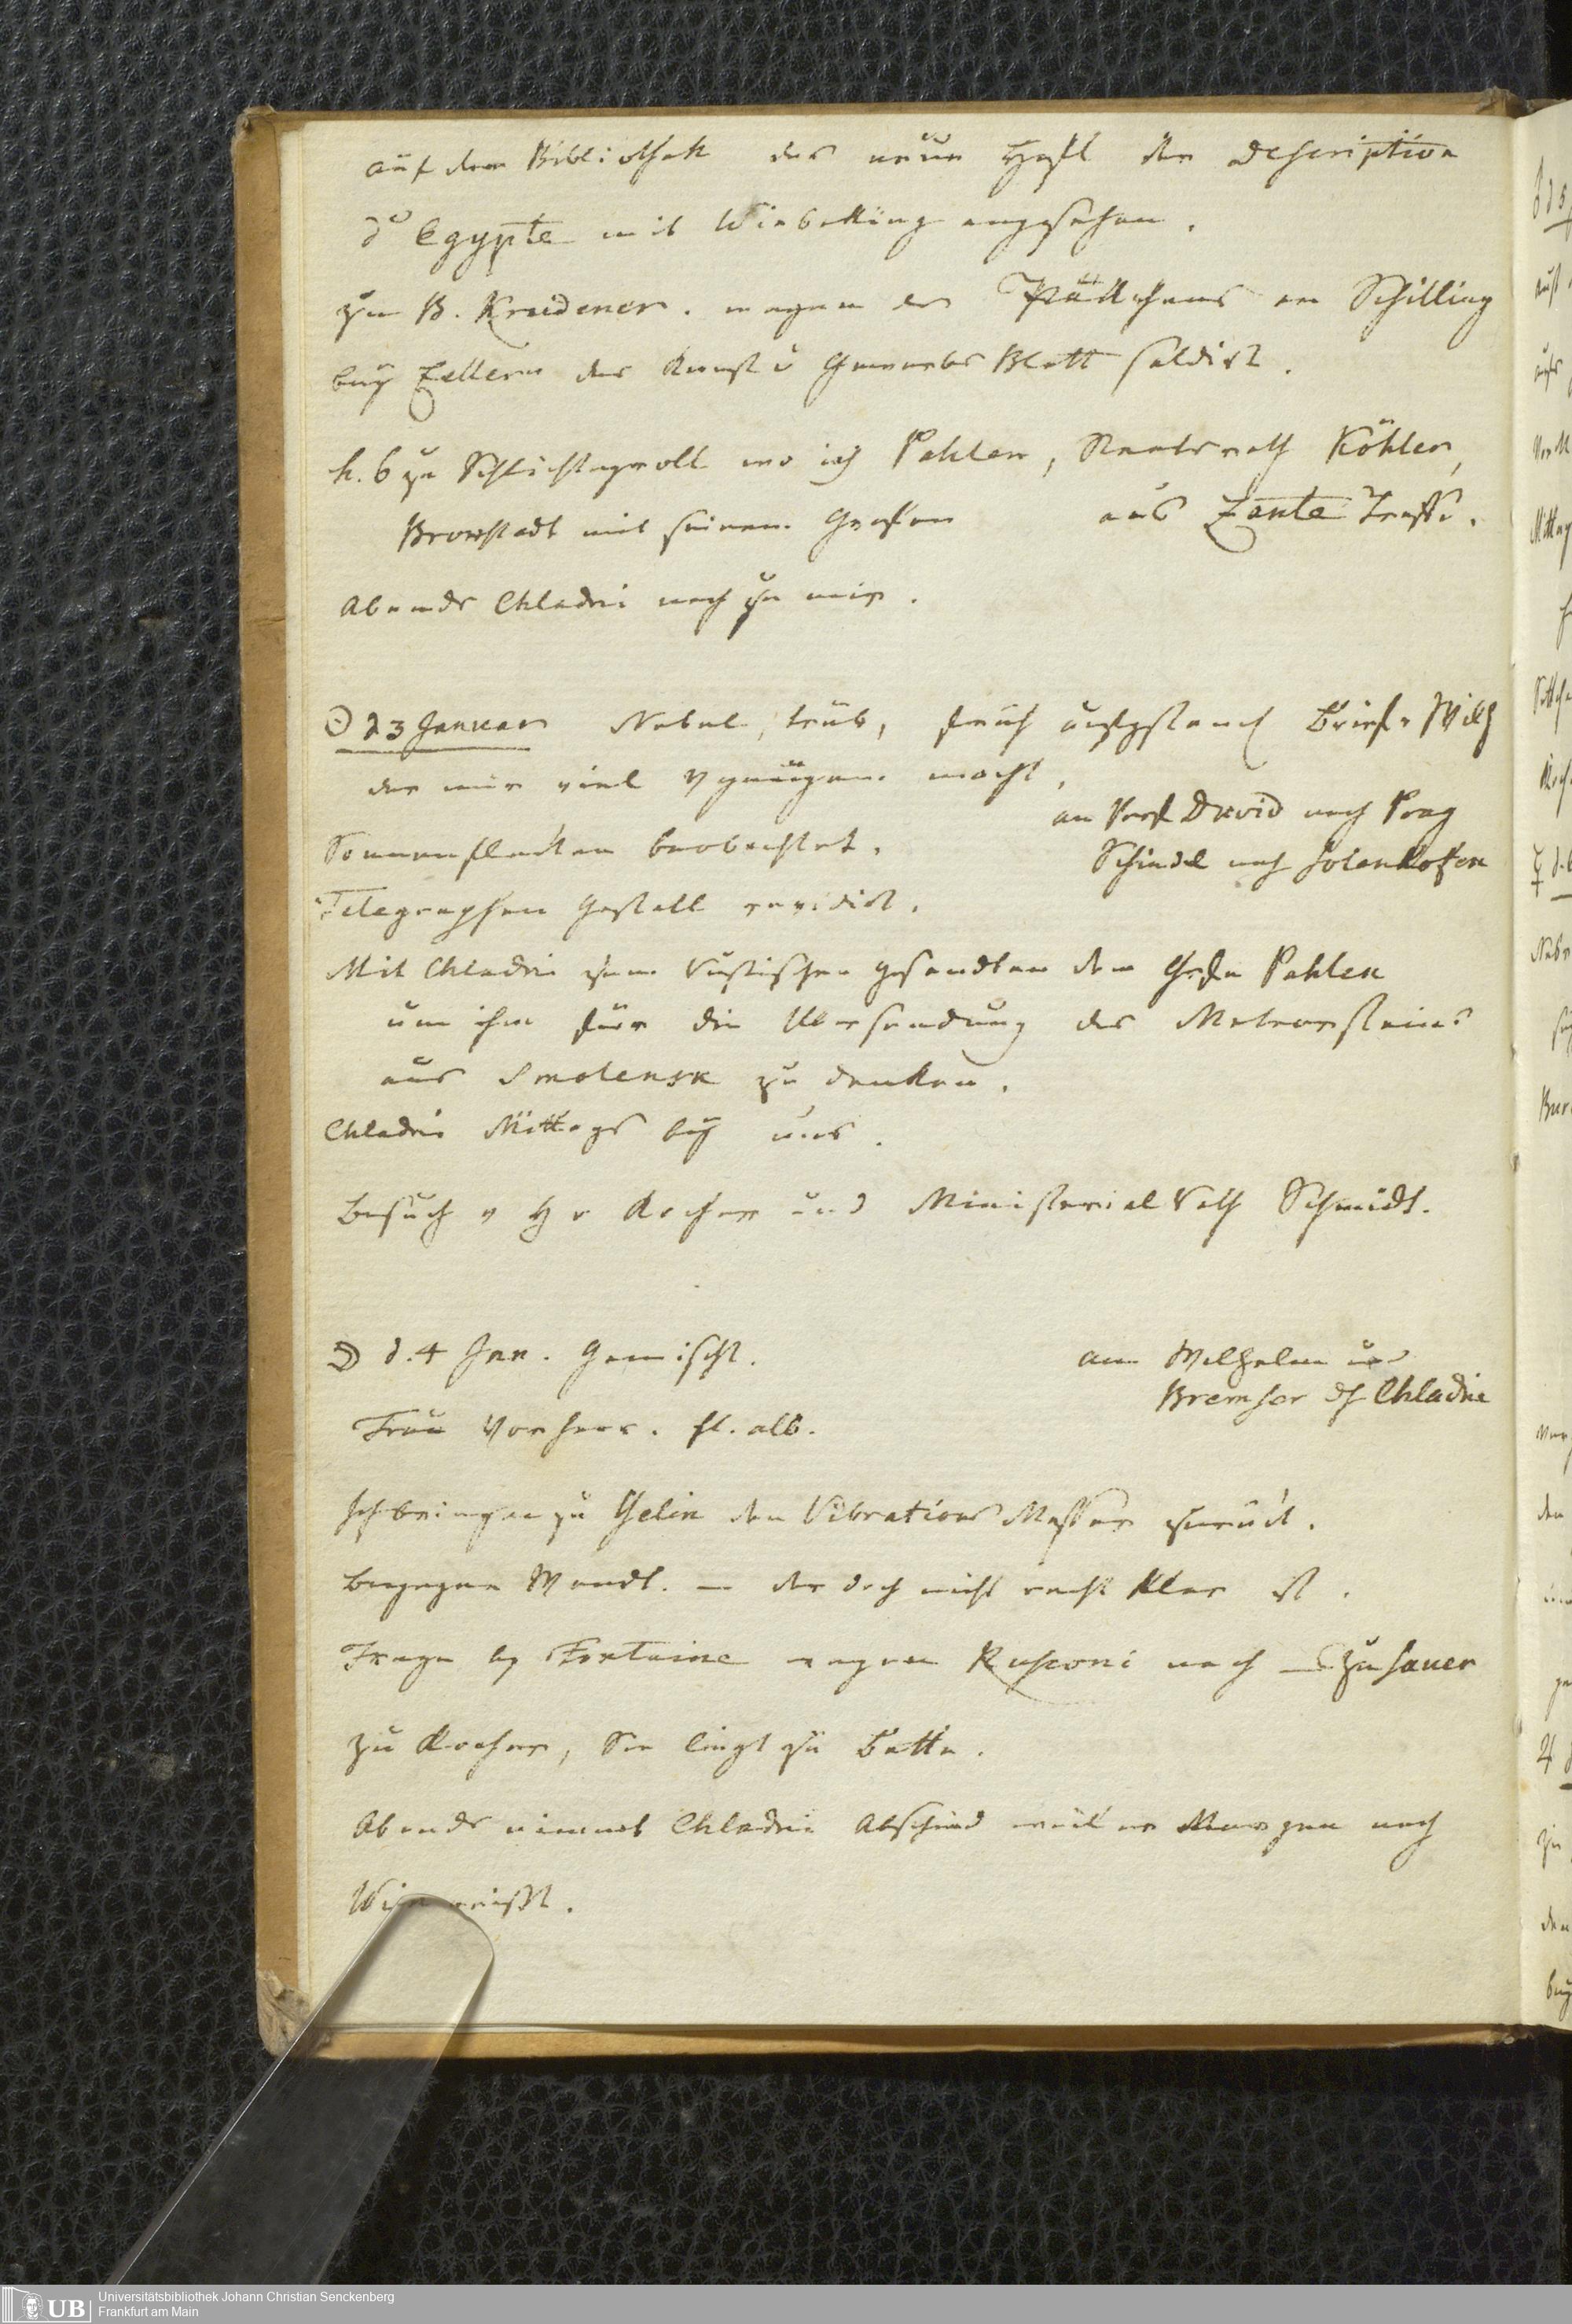 auf der Bibliothek das neue Heft der Description
d'Egypte mit Wiebeking angesehen.
zu B. Krüdener. wegen des Päckchens an Schilling
bey Zellern das Kunst u Gewerbs Blatt soldirt.
h. 6 zu Schlichtegroll wo ich Pahlen, Staatsrath Köhler,
Bronstadt mit seinem Grafen aus Zante treffe.
Abends Chladni noch zu mir.
☉ d 3 Januar Nebel, trüb, früh aufgestand Brief v Wilh
der mir viel Vgnügen macht.
an Prof David nach Prag
Sonnenflecken beobachtet.
Schindel nach Solenhofen
Telegraphen Gestell revidirt.
Mit Chladni zum Rußischen Gesandten dem Grafen Pahlen
um ihm für die Übersendung des Meteorsteins
aus Smolensk zu danken.
Chladni Mittags bey uns.
Besuch v Hr Kocher und Ministerial Rath Schmidt.
☽ d. 4 Jan. Gemischt.
an Wilhelm und
Bremser dh Chladni
Frau Vorherr. fl. alb.
Ich bringe zu Yelin den Vibrations Messer zurück.
Begegne Wendt. — der doch nicht recht klar ist.
Frage by Fontaine wegen Rusconi nach — zu Sauer
zu Kocher, Sie liegt zu Bette.
Abends nimmt Chladni Abschied weil er Morgen nach
Wien reißt.
Universitätsbibliothek Johann Christian Senckenberg
Frankfurt am Main
UB